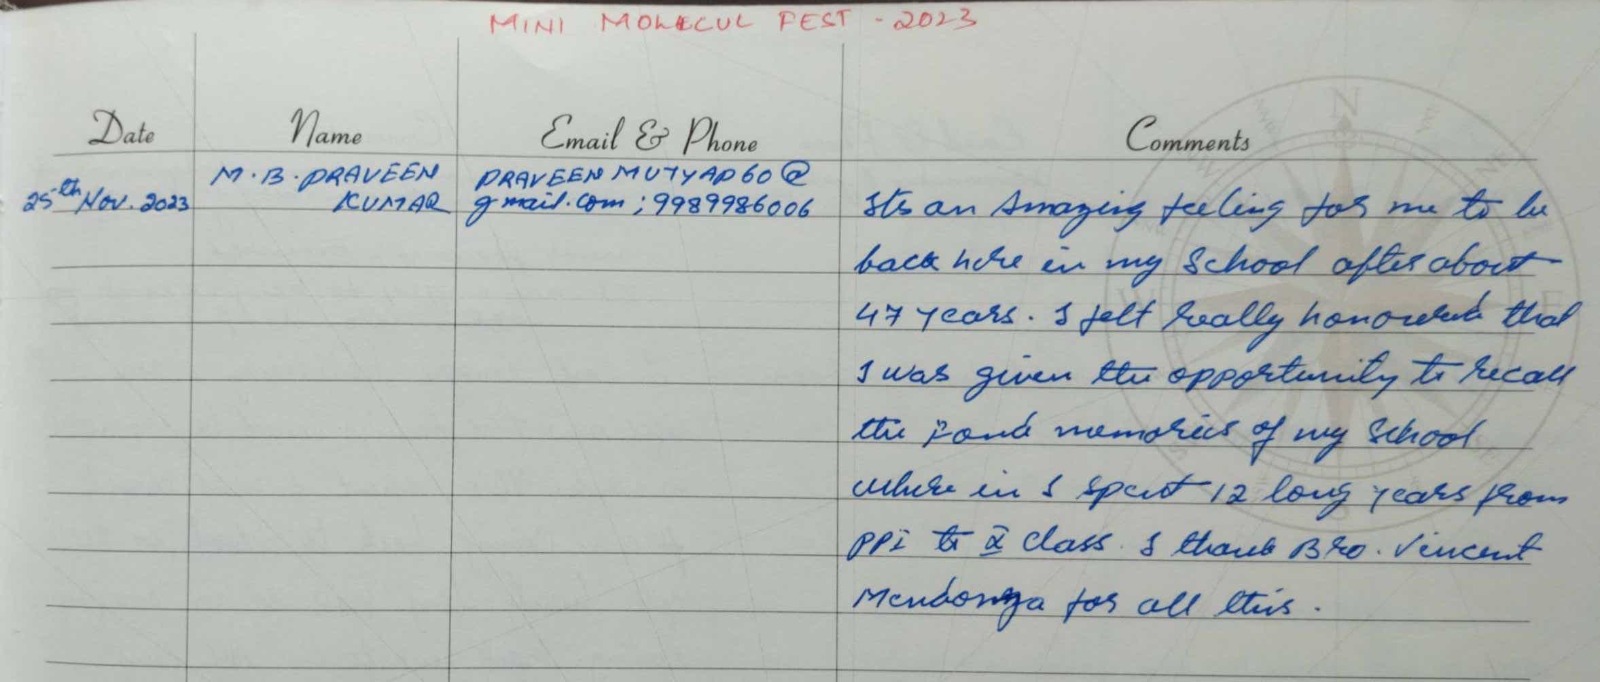 MINI MOLECUL FEST - 2023
Date Name Email & Phone Comments
M. B. PRAVEEN PRAVEENMUTYAP60@
25th Nov. 2023 KUMAR gmail.com ; 9989986006 Its an Amazing feeling for me to be
back here in my School after about
47 years. I felt really honoured that
I was given the opportunity to recall
the fond memories of my School
where in I spent 12 long years from
PPI to X class. I thank Bro. Vincent
Mendonza for all this.